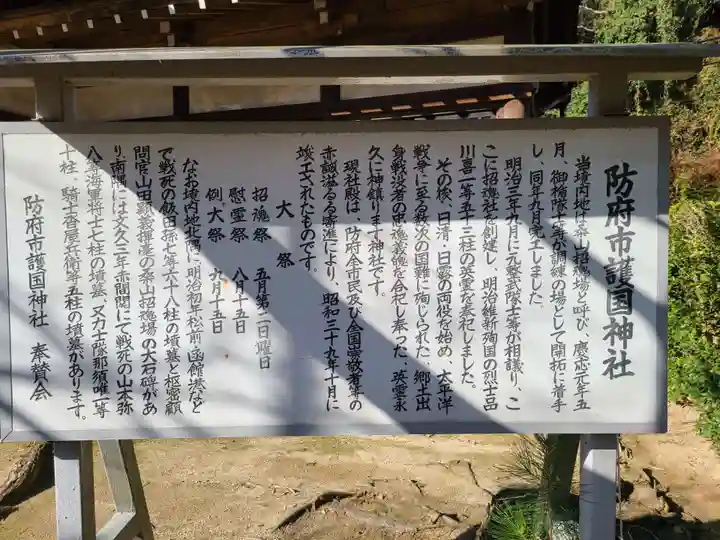 防府市護国神社
当境内地は桑山招魂場と呼び、慶応元年五
月、御楯隊士等が訓練の場として開拓に着手
し、同年九月完工しました。
明治三年九月に元整武隊士等が相議り、こ
こに招魂社を創建し、明治維新殉国の烈士品
川喜一等五十三柱の英霊を奉祀しました。
その後、日清、日露の両役を始め、太平洋
戦争に至る数次の国難に殉じられた、郷土出
身戦没者の忠魂義魄を合祀し奉った、英霊永
久に神鎮ります神社です。
現社殿は、防府全市民及び全国崇敬者等の
赤誠溢るる寄進により、昭和三十九年十月に
竣工されたものです。
大祭
招魂祭 五月第二日曜日
慰霊祭 八月十五日
例大祭 九月十五日
なお境内地北隅に、明治初年松前、函館港など
で戦死の飯田孫三等六十八柱の墳墓と枢密顧
問官山田顕義揮毫の桑山招魂場の大石碑があ
り、南隅には文久三年赤間関にて戦死の山本弥
八等海軍将士七柱の墳墓、又力士隊那須唯一等
十柱、騎士香屋左衛等五柱の墳墓があります。
防府市護国神社 奉賛会